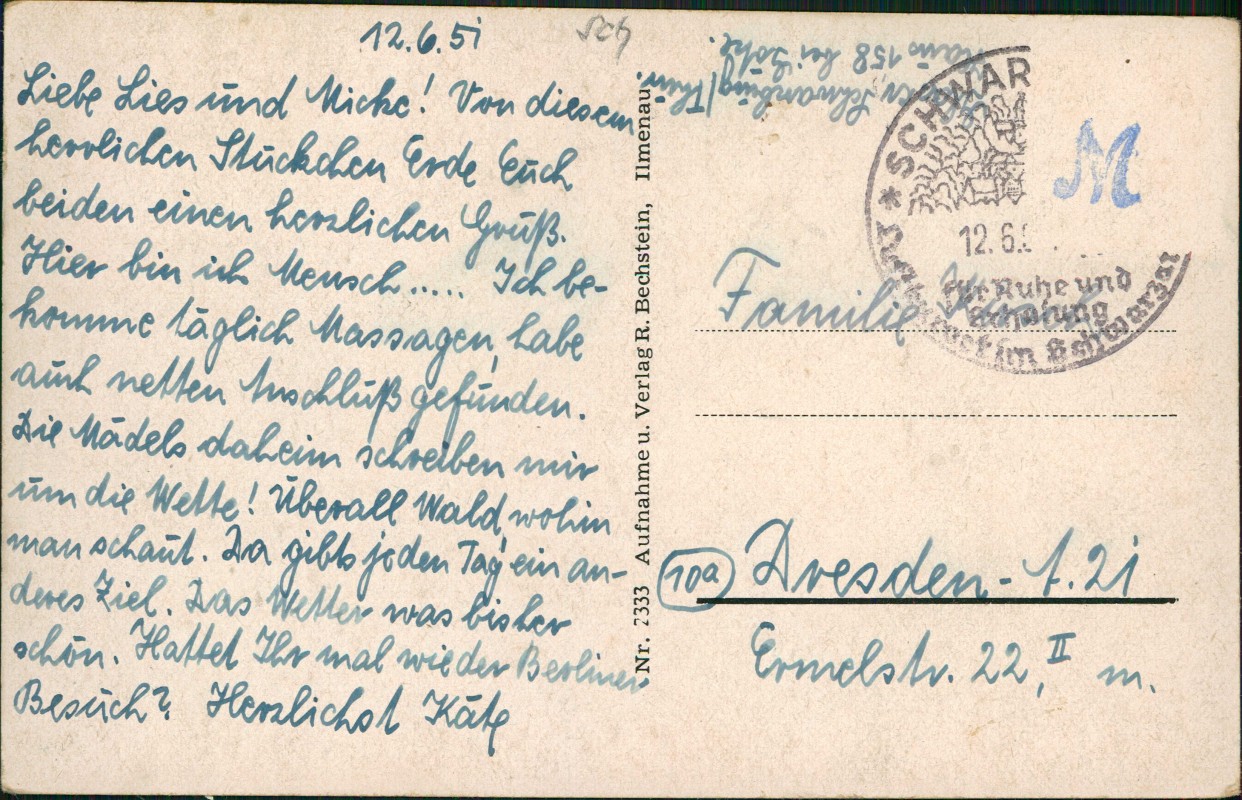 12.6.51
Sch
Liebe Lies und Micke! Von diesem
herrlichen Stückchen Erde Euch
beiden einen herzlichen Gruß.
Hier bin ich Mensch..... Ich be-
komme täglich Massagen, habe
auch netten Anschluß gefunden.
Die Mädels daheim schreiben mir
um die Wette! Überall Wald, wohin
man schaut. Da gibts jeden Tag ein an-
deres Ziel. Das Wetter was bisher
schön. Hattet Ihr mal wieder Berliner
Besuch? Herzlichst Käte
Nr. 2333 Aufnahme u. Verlag R. Bechstein, Ilmenau
Schwarzburg/Thür.
Haus 158 bei
* SCHWAR
12.6.5
für Ruhe und
Erholung
im Schwarzat
M
Familie
10a Dresden-A.21
Ermelstr. 22, II m.